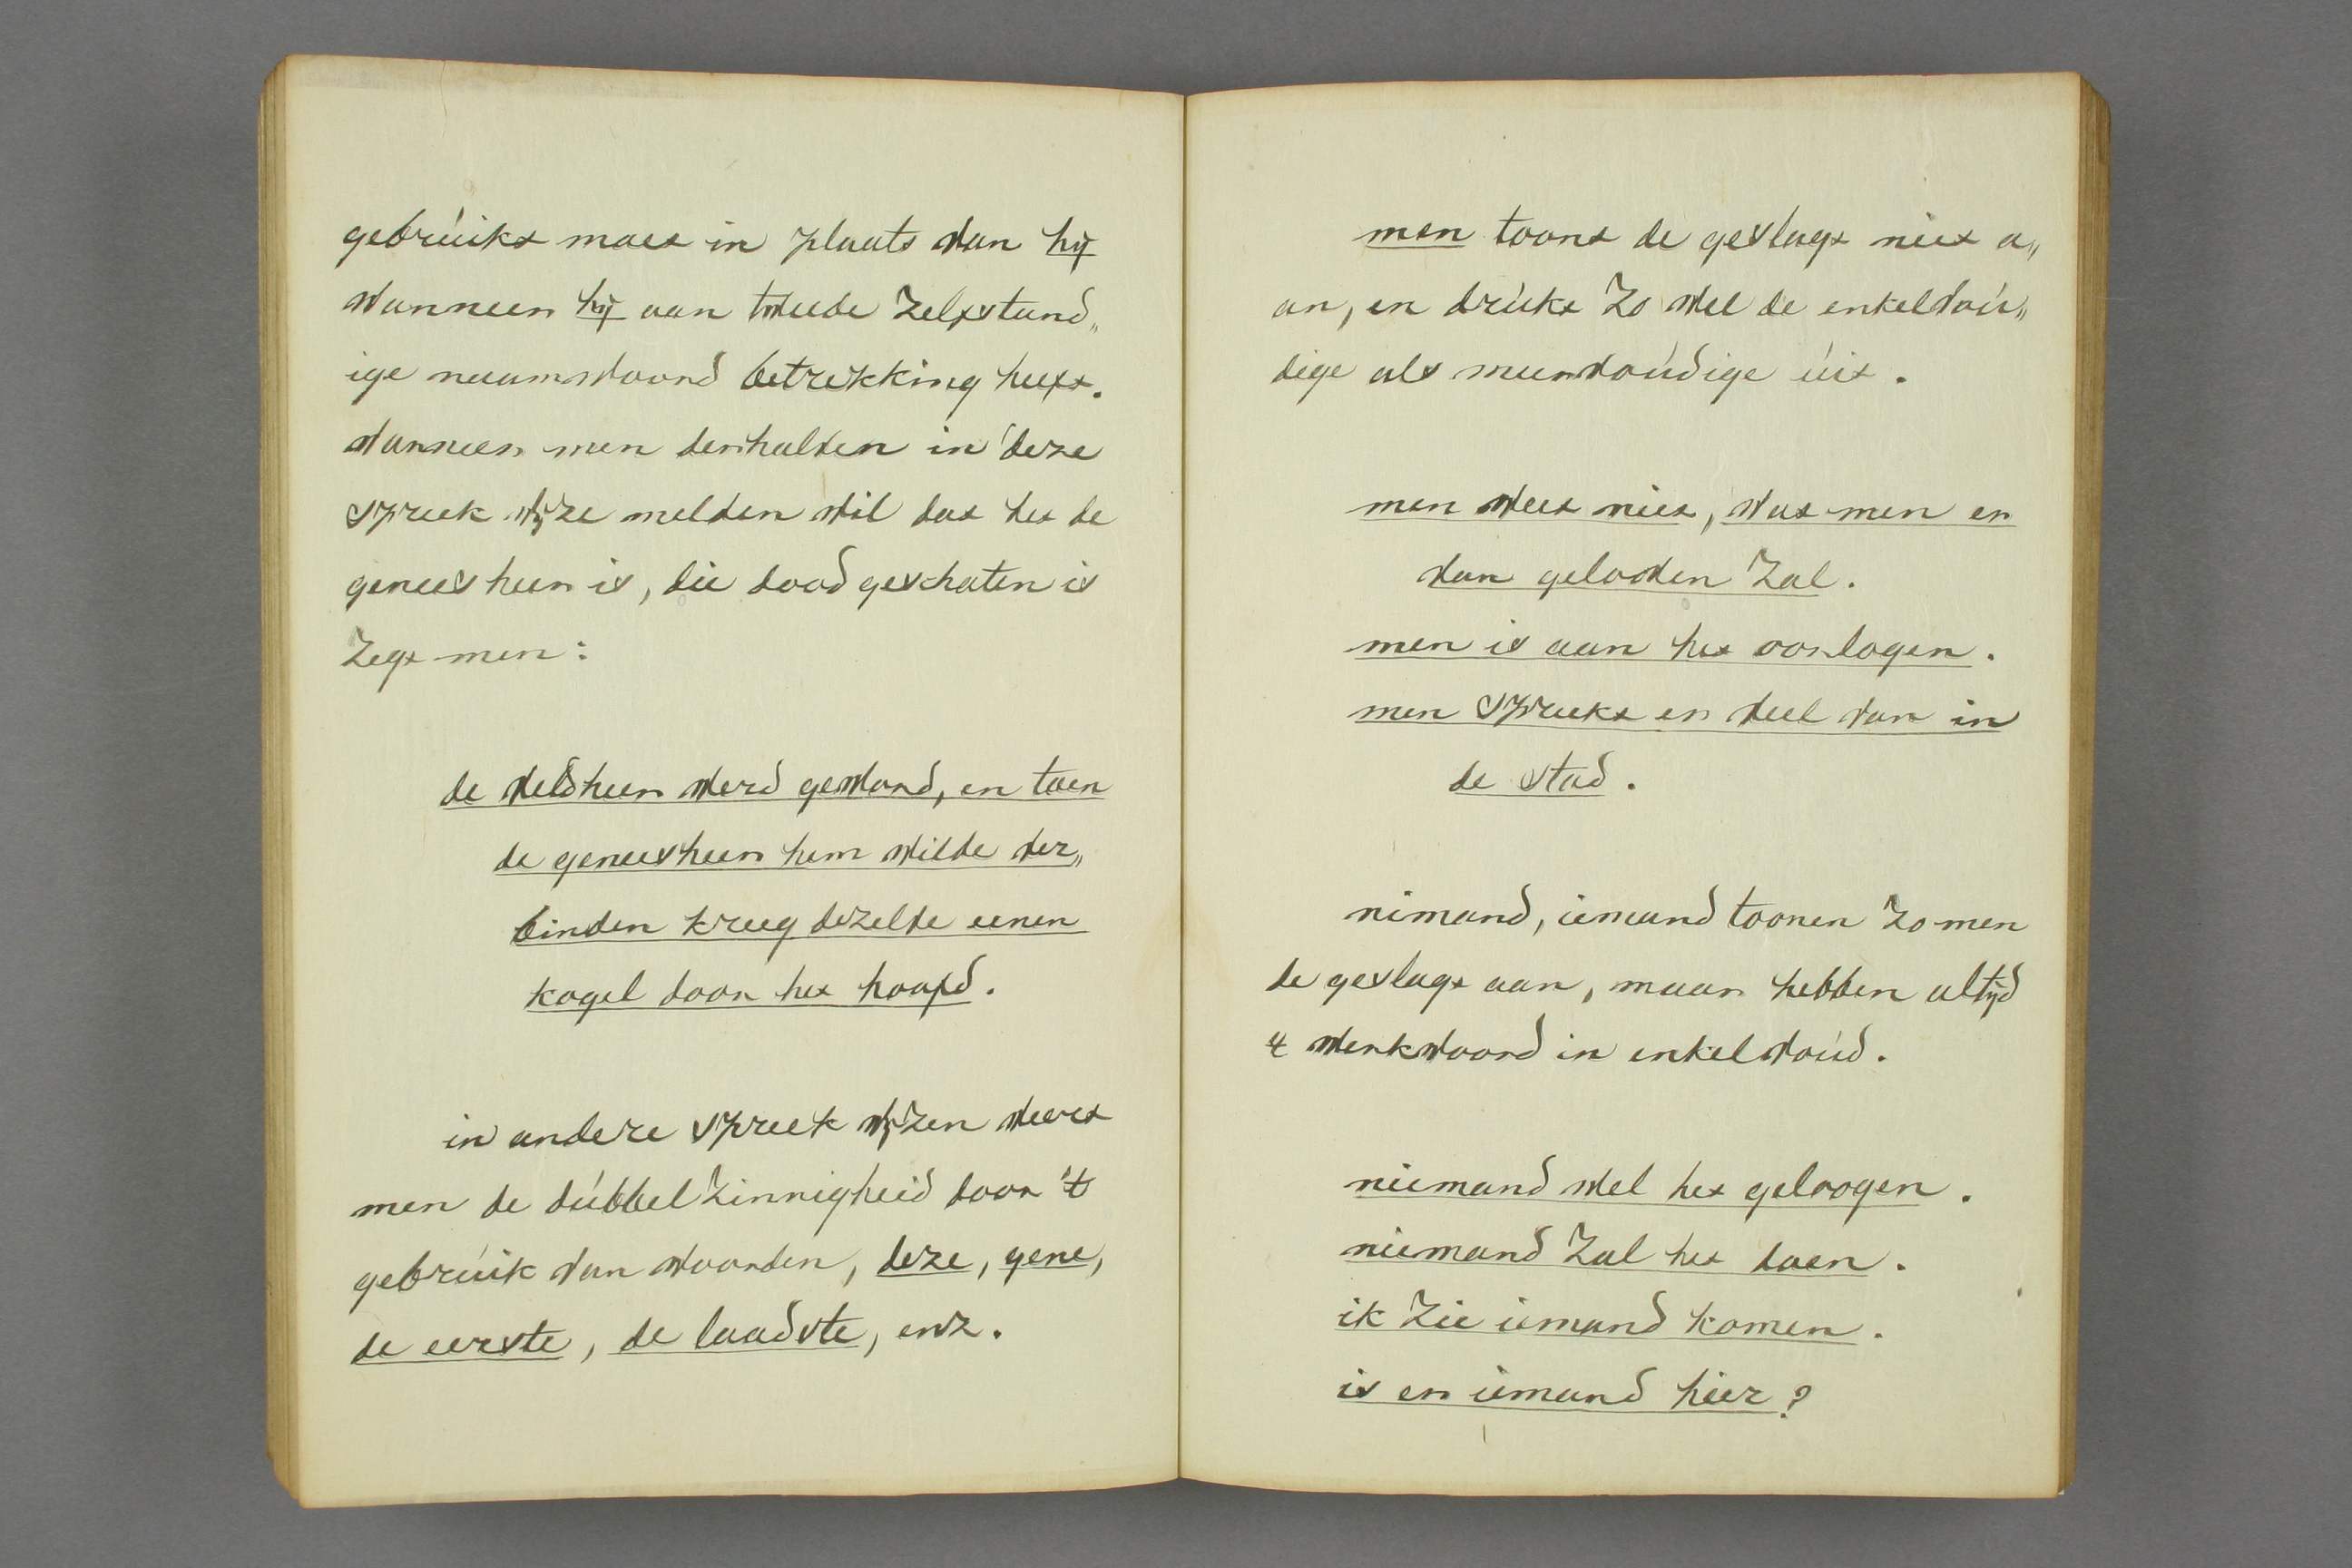 gebrúikt moet in plaats van hij
wanneer hij aan twede zelfstand„
ige naamwoord betrekking heeft.
wanneer men derhalven in deze
spreek wijze melden wil dat het de
geneesheer is, die dood geschoten is
zegt men:
de veldheer werd gewond, en toen
de geneesheer hem wilde ver„
binden kreeg dezelve eenen
kogel door het hoofd.
in andere spreek wijzen weert
men de dúbbelzinnigheid door 't
gebrúik van woorden, deze, gene,
de eerste, de laadste, enz.
men toont de geslagt niet a„
an, en drúkt zo wel de enkelvoú„
dige als meervoúdige úit.
men weet niet, wat men er
van geloven zal.
men is aan het oorlogen.
men spreekt er veel van in
de stad.
nimand, iemand toonen zo men
de geslagt aan, maar hebben altijd
't werkwoord in enkelvoúd.
niemand wel het geloogen.
niemand zal het doen.
ik zie iemand komen.
is er iemand hier?